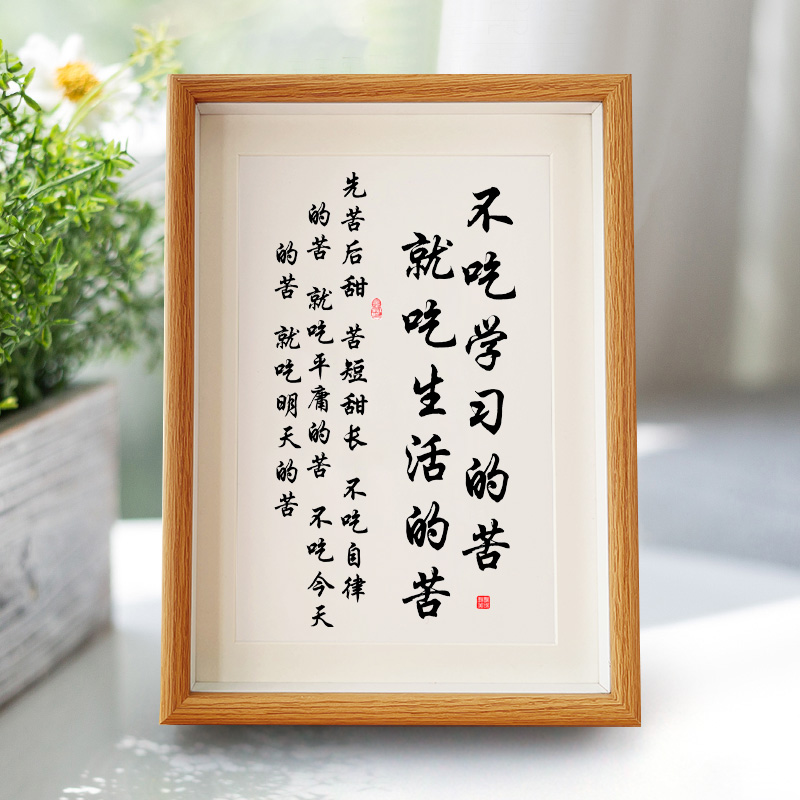 不吃学习的苦
就吃生活的苦
先苦后甜 苦短甜长 不吃自律
的苦 就吃平庸的苦 不吃今天
的苦 就吃明天的苦